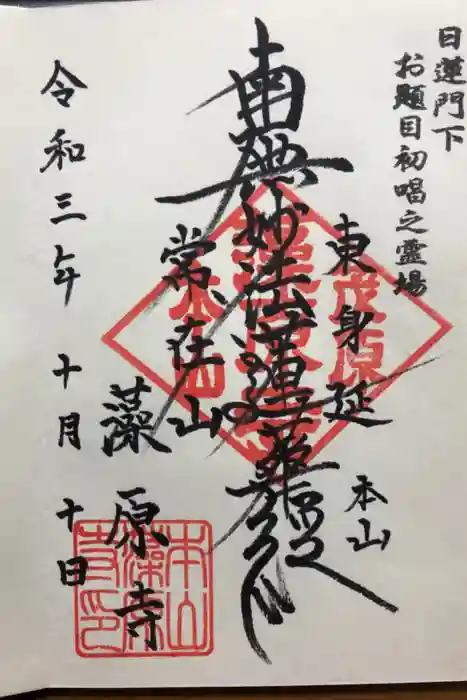 日蓮門下
お題目初唱之霊場
東身延
本山
南無妙法蓮華経
常在山
藻原寺
令和三年十月十日
茂原
本山
本山
藻原
寺印